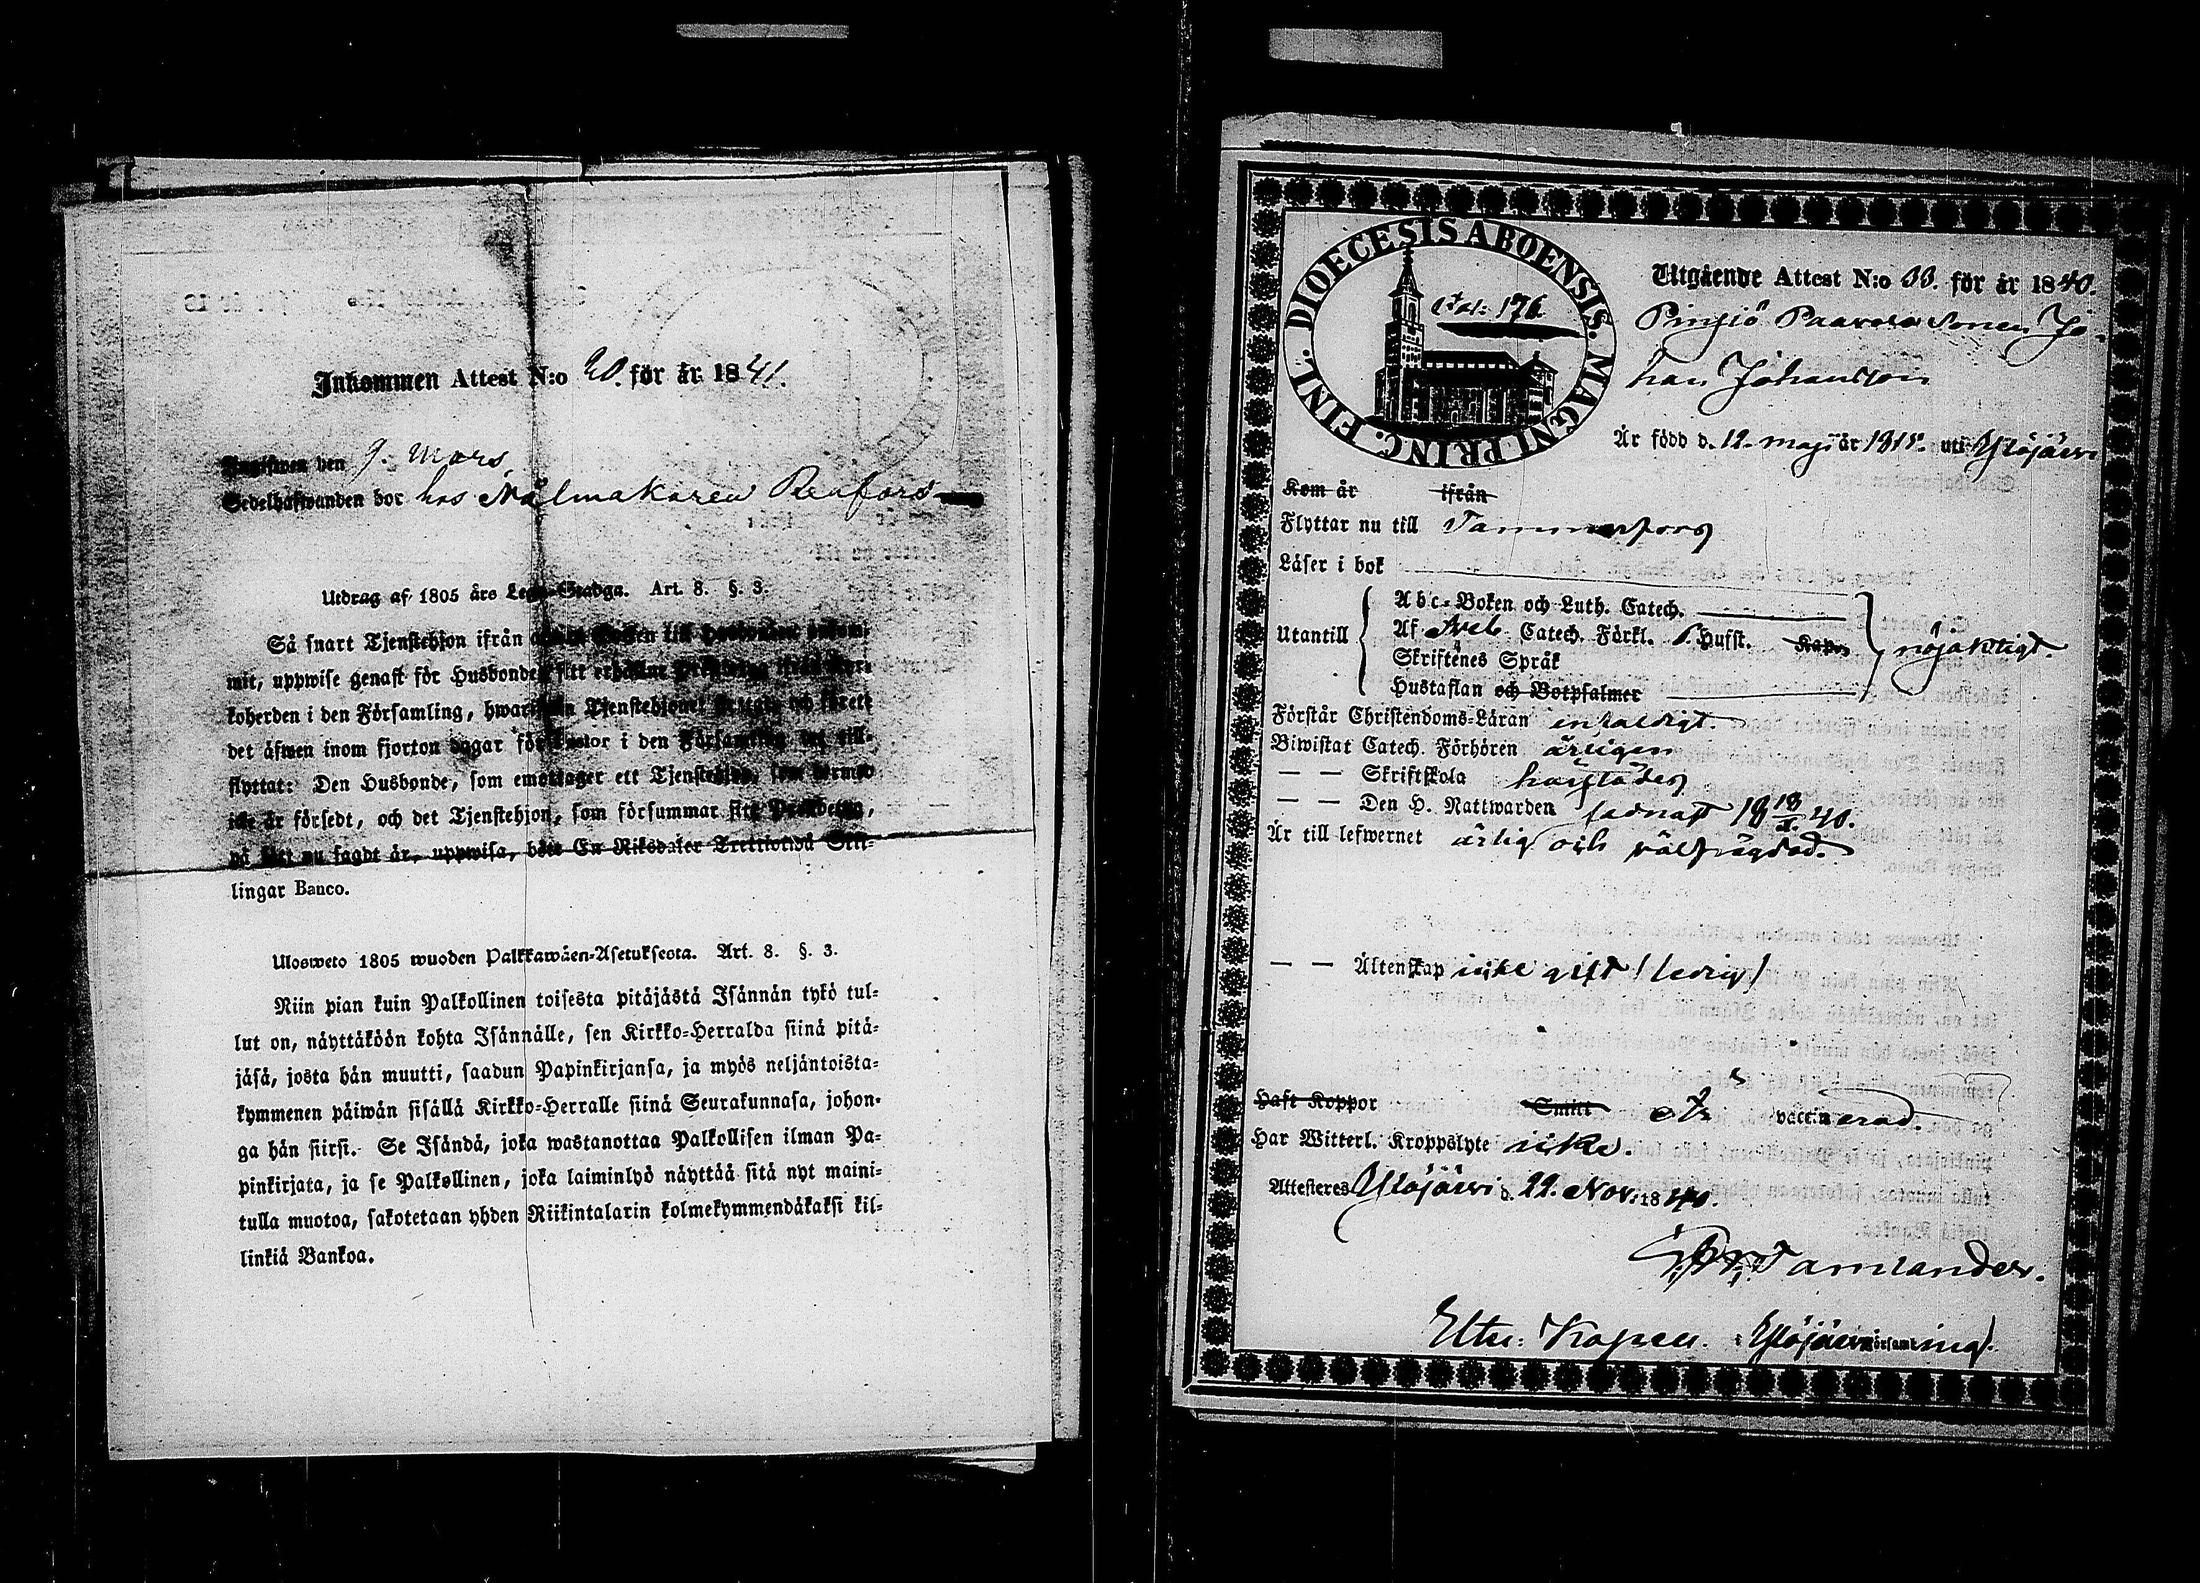 Inkommen Attest N:o 20. för år 1841.
Ingifwen den 9. Mars
Sedelhafwanden bor hos Målmakaren Renfors
Utdrag af 1805 års Lego-Stadga. Art. 8. §. 3.
Så snart Tjenstehjon ifrån
mit, uppwise genast för Husbonden sitt erhållne
koherden i den Församling, hwarifrån Tjenstehjonet
det äfwen inom fjorton dagar för Pastor i den Församling
flyttat: Den Husbonde, som emottager ett Tjenstehjon, som dermed
icke är försedt, och det Tjenstehjon, som försummar sitt Prestbetyg,
på sätt nu sagdt är, uppwisa, böte En Riksdaler Trettiotvå Skil-
lingar Banco.
Ulosweto 1805 wuoden Palkkawäen-Asetuksesta. Art. 8. §. 3.
Niin pian kuin Palkollinen toisesta pitäjästä Isännän tykö tul-
lut on, näyttäköön kohta Isännälle, sen Kirkko-Herralda siinä pitä-
jäsä, josta hän muutti, saadun Papinkirjansa, ja myös neljäntoista-
kymmenen päiwän sisällä Kirkko-Herralle siinä Seurakunnasa, johon-
ga hän siirsi. Se Isändä, joka wastanottaa Palkollisen ilman Pa-
pinkirjata, ja se Palkollinen, joka laiminlyö näyttää sitä nyt maini-
tulla muotoa, sakotetaan yhden Riikintalarin kolmekymmendäkaksi kil-
linkiä Bankoa.
DIOECESIS ABOENSIS. MAGNI PRINC. FINL.
Pol: 176
Utgående Attest N:o 33. för år 1840.
Pinsiö Paavola Sonen Jo
han Johansson
Är född d. 12. maji år 1815. uti Ylöjärvi
Kom år ifrån
Flyttar nu till Tammerfors
Läser i bok
Utantill
Abc-Boken och Luth. Catech.
Af Sveb. Catech. Förkl. 5. Hufst. Kap.
Skriftenes Språk
Hustaflan och Botpsalmer
nöjaktigt.
Förstår Christendoms-Läran enfaldigt.
Biwistat Catech. Förhören årligen
— — Skriftskola härstädes
— — Den H. Nattwarden sednast 18 18/X 40.
Är till lefwernet ärlig och välfrägdad.
— — Äktenskap icke gift (ledig)
Haft Koppor Smitt Är vaccinerad.
Har Witterl. Kroppslyte icke.
Attesteres Ylöjärvi d. 22. Nov. 1840.
Tamlander.
Kapell. i Ylöjärvi Församling.